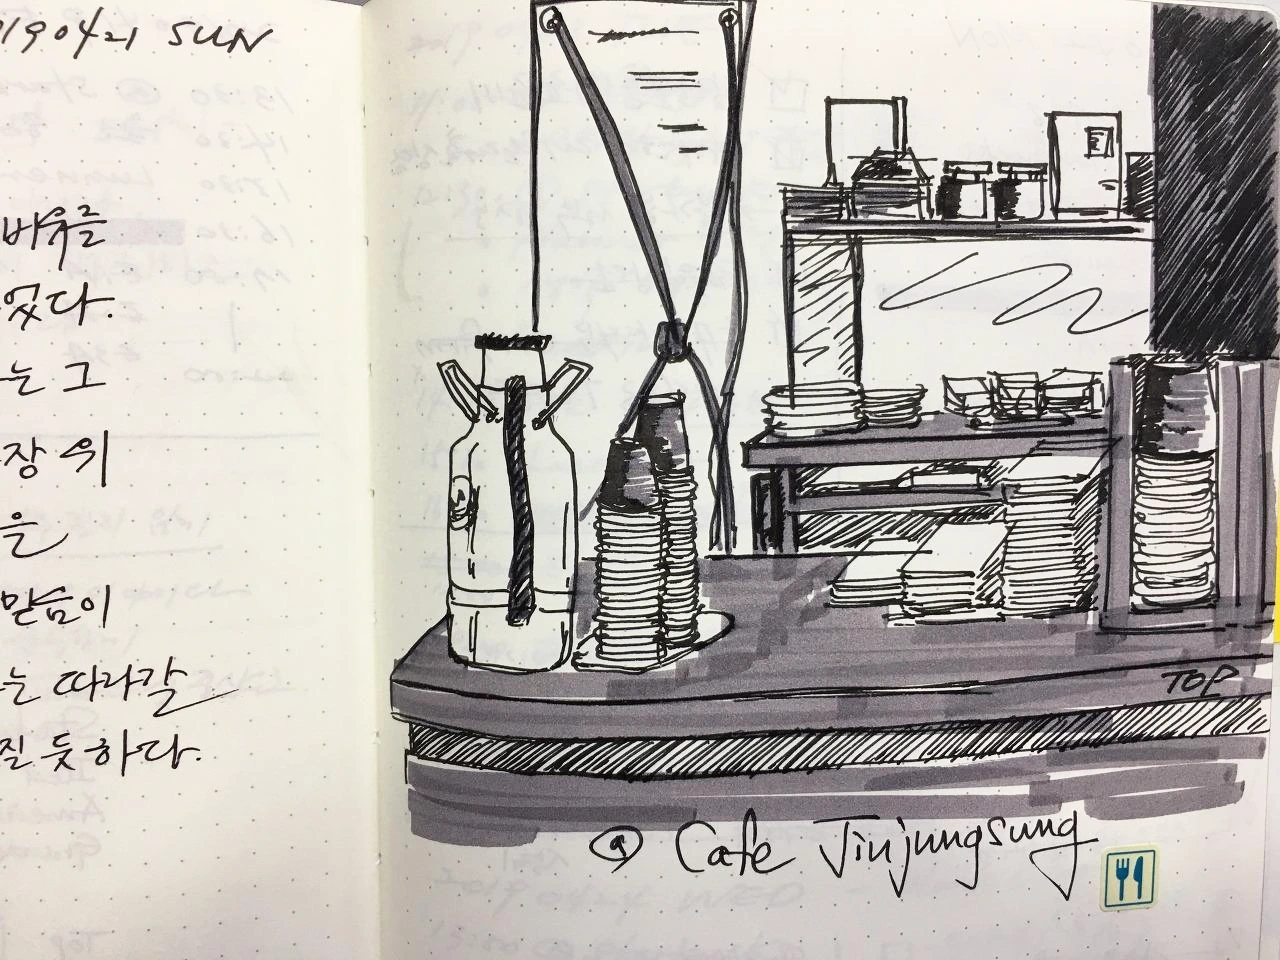 190421 SUN
바유를
있다.
는 그
장 위
은
믿음이
는 따라갈
질 듯하다.
TOP
@ Cafe Jinjungsung